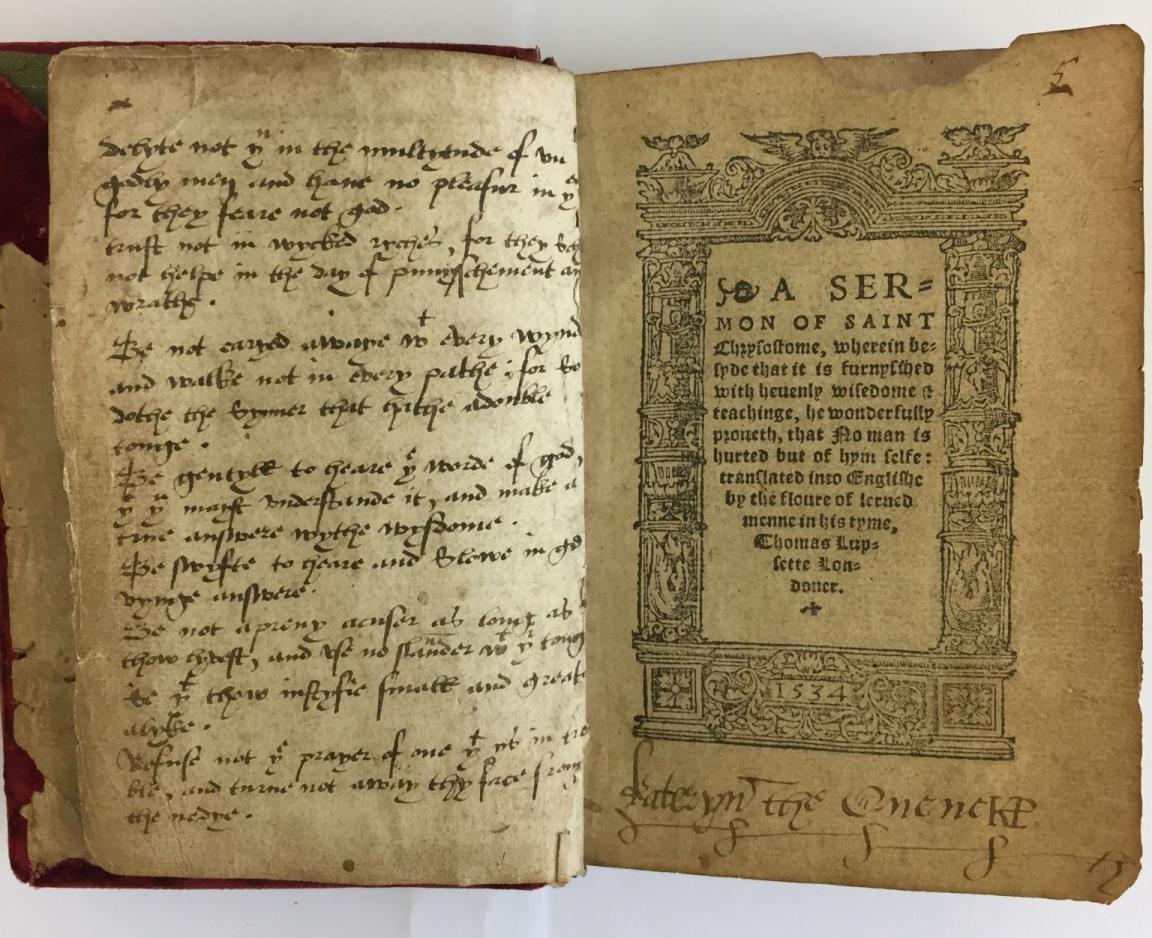 delyte not yu in the multytude of vn
godly men and haue no pleasur in
for they feare not god.
trust not in wycked ryches, for they
not helpe in the day of punysschement
wrathe.
Be not caryed awaye wt every wynd
and walke not in every pathe; for so
dothe the Synner that hathe a double
tonge.
Be gentyll to heare ye worde of god,
yt yu mayst vnderstande it, and make a
true answere wythe wysdome.
Be swyfte to heare and Slowe in
vynge answere.
Be not a preuy acuser as long as
thow lyvest, and vse no slaunder wt yr
Se yt thow iustyfie small and greate
alyke.
Refuse not ye prayer of one yt ys in tro
ble, and turne not away thy face from
the nedye.
A SER=
MON OF SAINT
Chrysostome, wherein be=
syde that it is furnysshed
with heuenly wisedome &
teachinge, he wonderfully
proueth, that No man is
hurted but of hym selfe:
translated into Englishe
by the floure of lerned
menne in his tyme,
Thomas Lup=
sette Lon=
doner.
1534
Kateryn the Quene KP